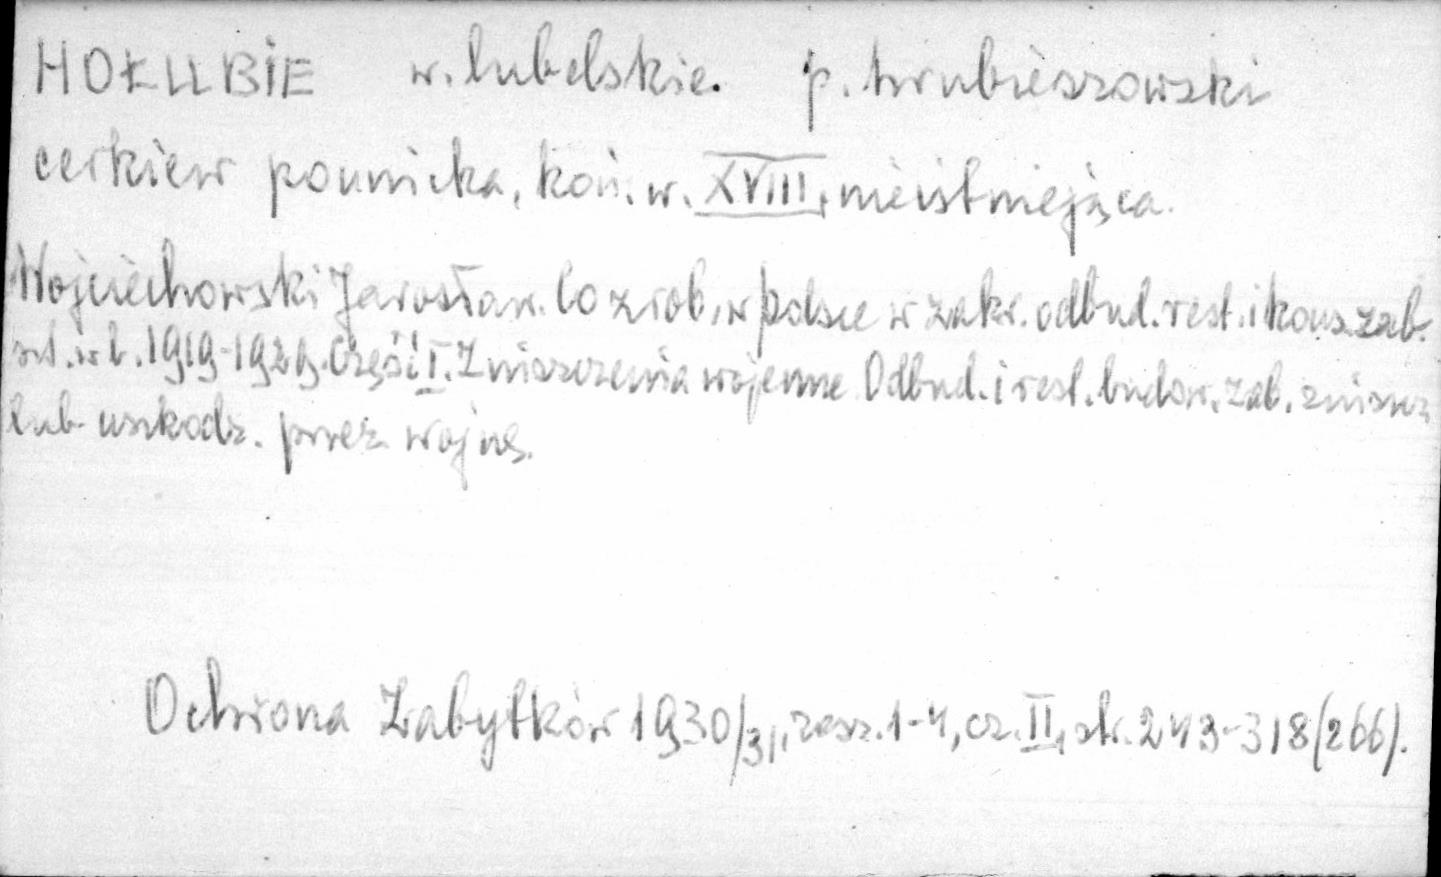 HOŁUBIE w. lubelskie. p. hrubieszowski
cerkiew pounicka, koń. w. XVIII, nieistniejąca.
Wojciechowski Jarosław. Co zrob. w Polsce w zakr. odbud. rest. i kons. zab.
szt. w l. 1919-1929. Część I. Zniszczenia wojenne. Odbud. i rest. budow. zab. zniszcz.
lub uszkodz. przez wojnę.
Ochrona Zabytków 1930/31, zesz. 1-4, cz. II, str. 243-318 (266).